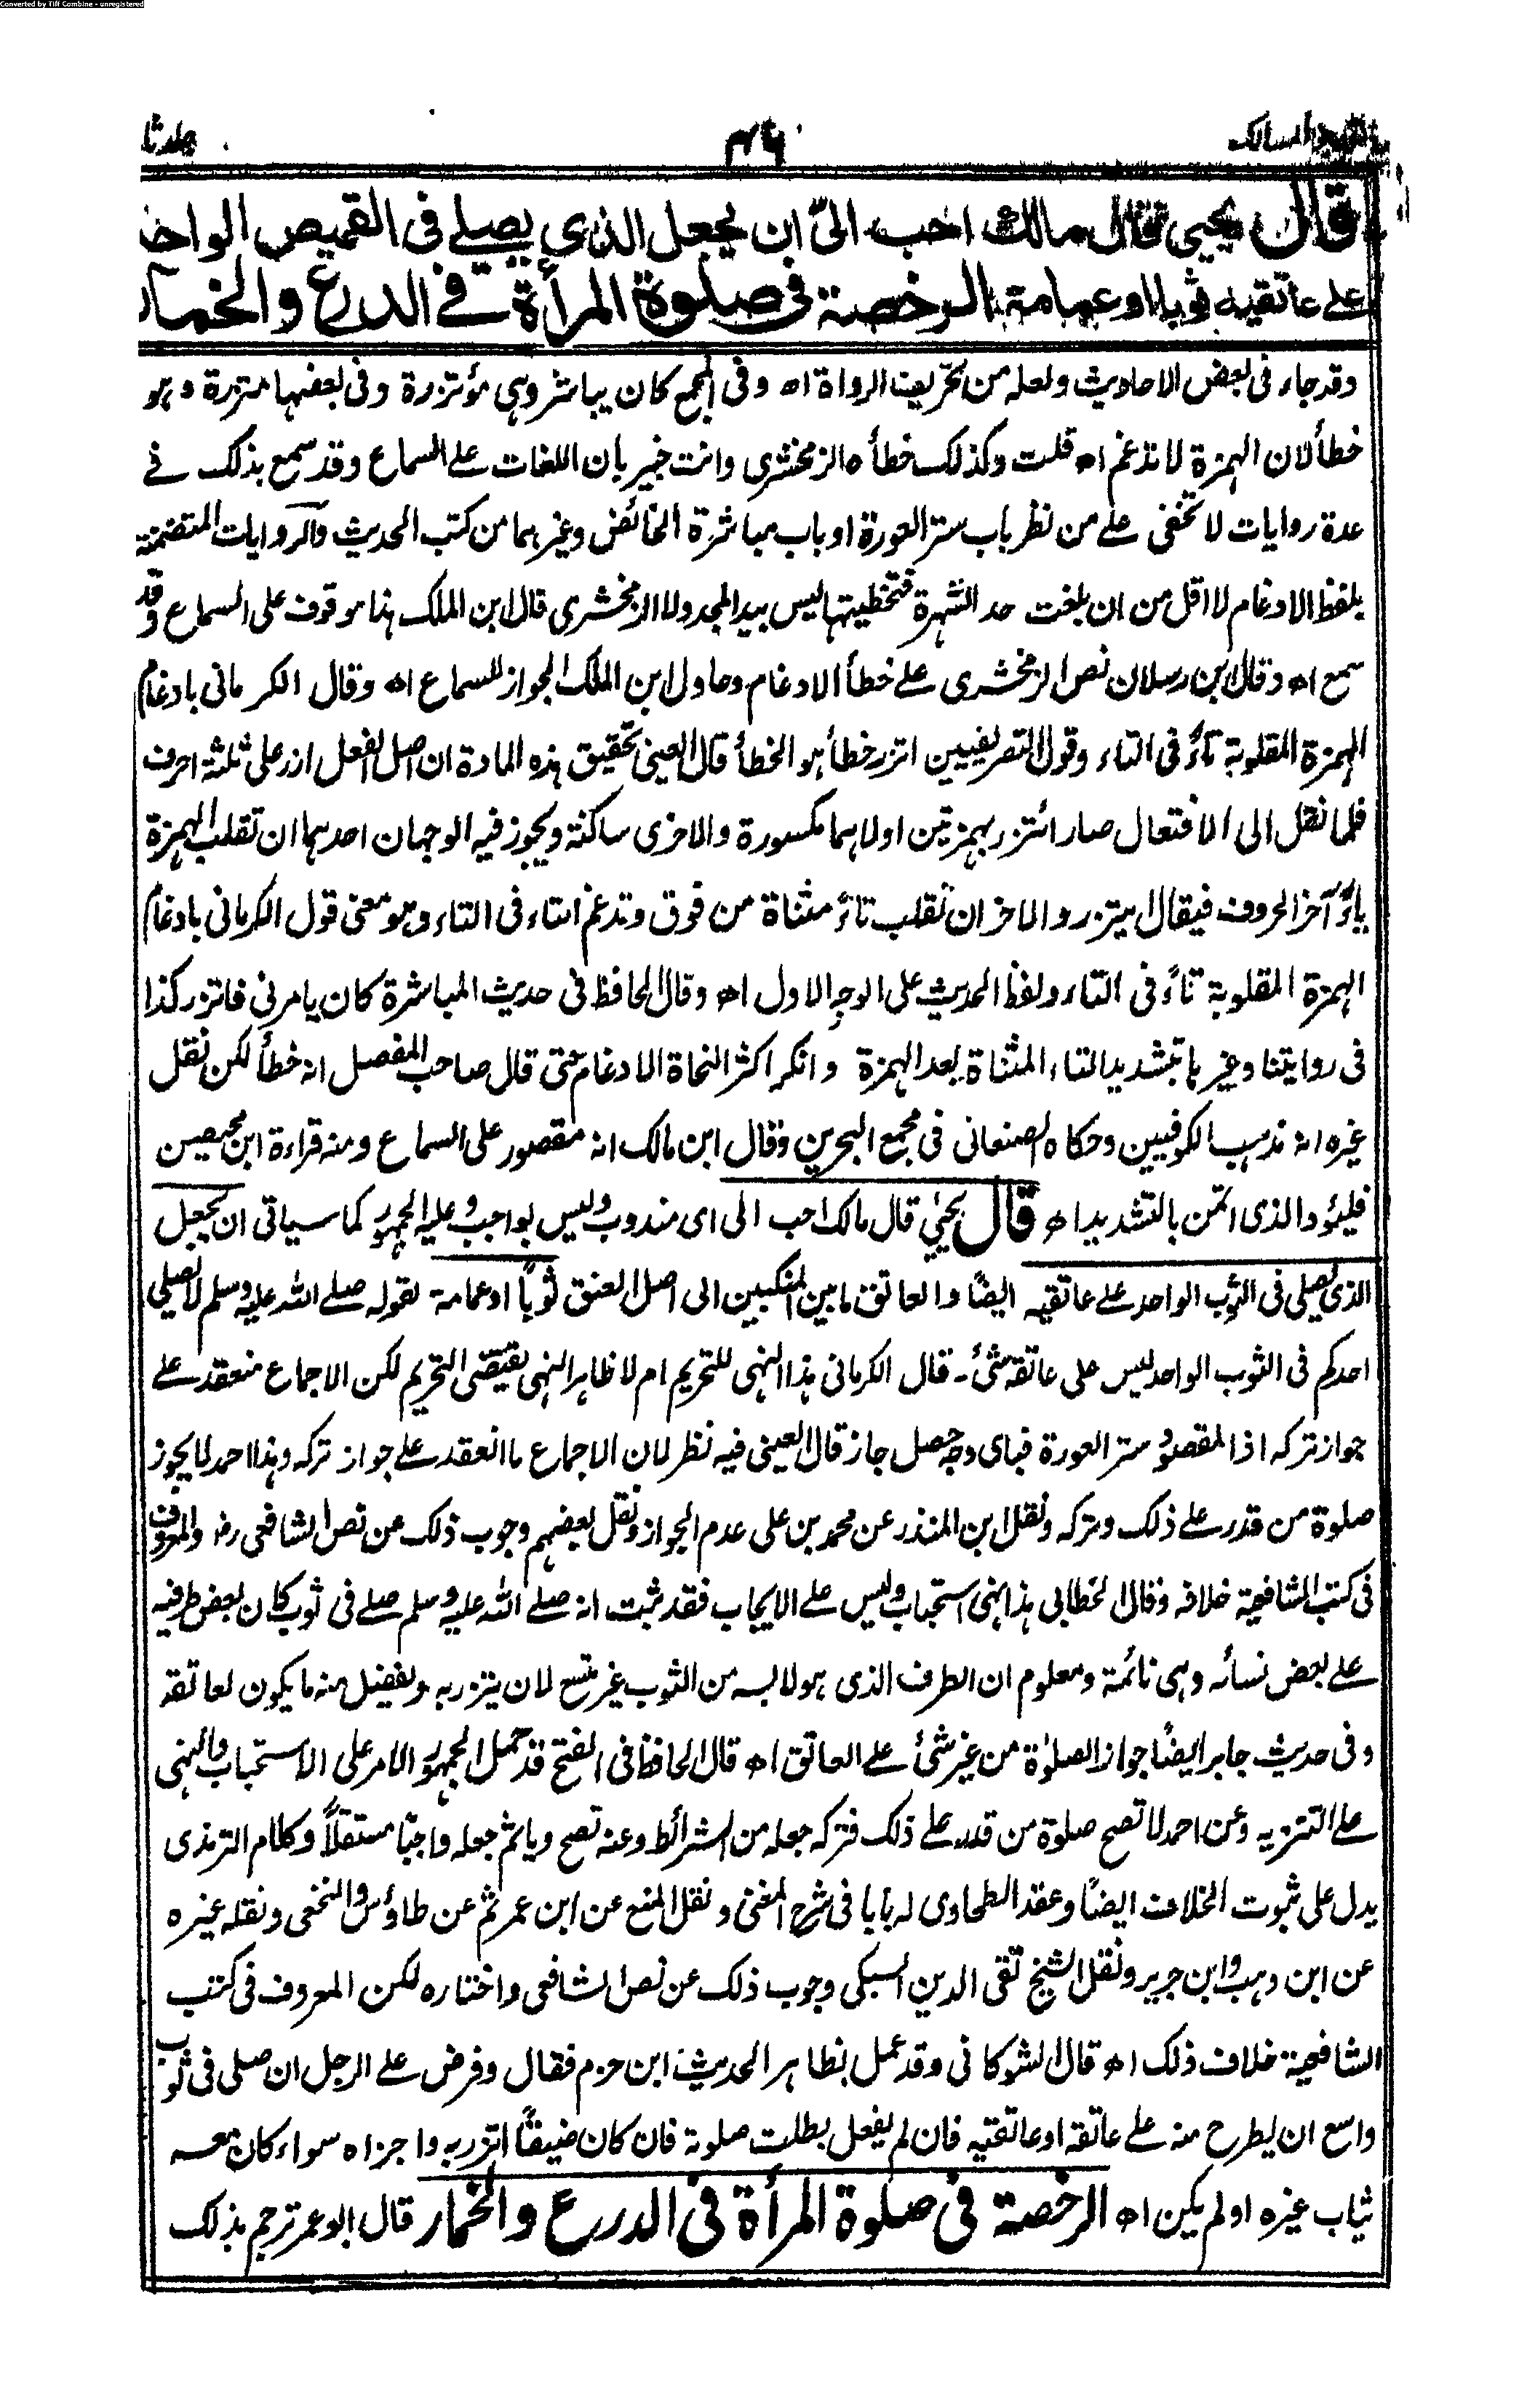 Converted by Tiff Combine - unregistered
المسالك
٤٦
جلد ثا
قال يحيى فقال مالك احب الىّ ان يجعل الذي يصلے فى القميص الواحد
علے عاتقيه ثوبا او عمامة الرخصة فى صلوة المرأة فے الدرع والخمار
وقد جاء فى بعض الاحاديث ولعله من تحريف الرواة اھ وفى المجمع كان يباشر وہى مؤتزرة وفى بعضہا متزرة وہو
خطأ لان الہمزة لا تدغم اھ قلت وكذلك خطأہ الزمخشرى وانت خبير بان اللغات علے السماع وقد سمع بذلك فے
عدة روايات لا تخفى علے من نظر باب ستر العورة او باب مباشرة الحائض وغيرہما من كتب الحديث والروايات المتضمنة
بلفظ الادغام لا اقل من ان بلغت حد الشہرة فتخطيتہا ليس بيد المجد ولا الزمخشرى قال ابن الملك ہذا موقوف على السماع وقد
سمع اھ وقال ابن رسلان نص الزمخشرى علے خطأ الادغام وحاول ابن الملك الجواز للسماع اھ وقال الكرمانى بادغام
الہمزة المقلوبة تاءً فى التاء وقول التصريفيين اتزر خطأ ہو الخطأ قال العينى تحقيق ہذہ المادة ان اصل الفعل ازر على ثلثة احرف
فلما نقل الى الافتعال صار ائتزر بہمزتين اولاہما مكسورة والاخرى ساكنة ويجوز فيه الوجہان احدہما ان تقلب الہمزة
ياءً آخر الحروف فيقال ايتزر والاخر ان تقلب تاءً مثناة من فوق وتدغم التاء فى التاء وہو معنى قول الكرمانى بادغام
الہمزة المقلوبة تاءً فى التاء ولفظ الحديث على الوجه الاول اھ وقال الحافظ فى حديث المباشرة كان يامرنى فاتزر كذا
فى روايتنا وغيرہا بتشديد التاء المثناة بعد الہمزة وانكر اكثر النحاة الادغام حتى قال صاحب المفصل انه خطأ لكن نقل
غيرہ انه مذہب الكوفيين وحكاہ الصنعانى فى مجمع البحرين وقال ابن مالك انه مقصور على السماع ومنه قراءة ابن محيصن
فليؤد الذى اتمن بالتشديد اھ قال يحيٰي قال مالك احب الى اى مندوب وليس بواجب وعليه الجمہور كما سياتى ان يجعل
الذى يصلى فى الثوب الواحد علے عاتقيه ايضًا والعاتق ما بين المنكبين الى اصل العنق ثوبًا او عمامة لقوله صلے اللہ عليه وسلم لا يصلى
احدكم فى الثوب الواحد ليس على عاتقه شئ۔ قال الكرمانى ہذا النہى للتحريم ام لا ظاہر النہى يقتضى التحريم لكن الاجماع منعقد علے
جواز تركه اذا المقصود ستر العورة فباى وجه حصل جاز قال العينى فيه نظر لان الاجماع ما انعقد علے جواز تركه وہذا احمد لا يجوز
صلوة من قدر علے ذلك وتركه ونقل ابن المنذر عن محمد بن على عدم الجواز ونقل بعضہم وجوب ذلك عن نص الشافعى رضہ والمعروف
فى كتب الشافعية خلافه وقال الخطابى ہذا نہى استحباب وليس علے الايجاب فقد ثبت انه صلے اللہ عليه وسلم صلے فى ثوب كان بعض طرفيه
علے بعض نسائه وہى نائمة ومعلوم ان الطرف الذى ہو لابسه من الثوب غير متسع لان يتزر به ويفضل منه ما يكون لعاتقه
وفى حديث جابر ايضًا جواز الصلوٰة من غير شئ علے العاتق اھ قال الحافظ فى الفتح قد حمل الجمہور الامر على الاستحباب والنہى
علے التنزيه وعن احمد لا تصح صلوة من قدر علے ذلك فتركه جعله من الشرائط وعنه تصح وياثم جعله واجبًا مستقلاً وكلام الترمذى
يدل على ثبوت الخلاف ايضًا وعقد الطحاوى له بابا فى شرح المغنى ونقل المنع عن ابن عمر ثم عن طاؤس والنخعى ونقله غيرہ
عن ابن وہب وابن جرير ونقل الشيخ تقى الدين السبكى وجوب ذلك عن نص الشافعى واختارہ لكن المعروف فى كتب
الشافعية خلاف ذلك اھ قال الشوكانى وقد عمل بظاہر الحديث ابن حزم فقال وفرض علے الرجل ان صلى فى ثوب
واسع ان يطرح منه علے عاتقه او عاتقيه فان لم يفعل بطلت صلوتة فان كان ضيقًا اتزر به واجزاہ سواء كان معه
ثياب غيرہ او لم يكن اھ الرخصة فى صلوة المرأة فى الدرع والخمار قال ابو عمر ترجم بذلك